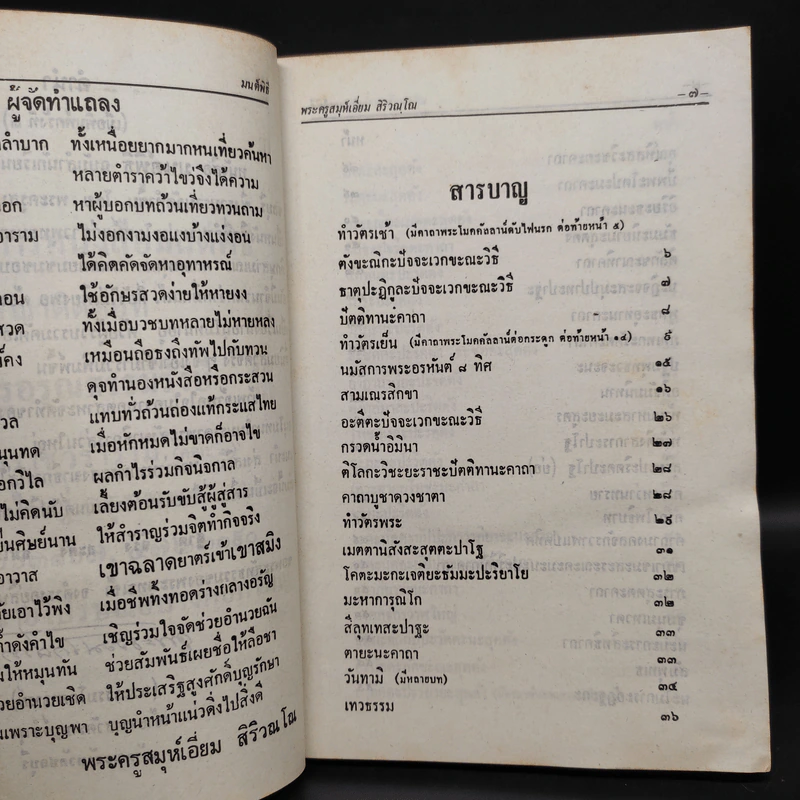 มนต์พิธี
ผู้จัดทำแถลง
ลำบาก ทั้งเหนื่อยยากมากหนเที่ยวค้นหา
หลายตำราคว้าไขว่จึงได้ความ
อก หาผู้บอกบทถ้วนเที่ยวทวนถาม
อาราม ไม่งอกงามงอแงบ้างแง่งอน
ได้คิดคัดจัดหาอุทาหรณ์
ใช้อักษรสวดง่ายให้หายงง
สวด ทั้งเมื่อบวชบทหลายไม่หายหลง
คง เหมือนถือธงถึงทัพไปกับทวน
ดุจทำนองหนังสือหรือกระสวน
วล แทบทั่วถ้วนถ่องแท้กระแสไทย
นุนทด เมื่อหักหมดไม่ขาดก็อาจไข
อกวิไล ผลกำไรร่วมกิจนิจกาล
ไม่คิดนับ เลี้ยงต้อนรับขับสู้ผู้สู่สาร
ย่นศิษย์นาน ให้สำราญร่วมจิตทำกิจจริง
อาวาส เขาฉลาดยาตร์เข้าเขาสมิง
ัยเอาไว้พิง เมื่อชีพทิ้งทอดร่างกลางอรัญ
ก้ำดังคำไข เชิญร่วมใจจัดช่วยอำนวยฉัน
งให้หมุนทัน ช่วยสัมพันธ์เผยชื่อให้ลือชา
วยอำนวยเชิด ให้ประเสริฐสูงศักดิ์บุญรักษา
นเพราะบุญพา บุญนำหน้าแน่วดิ่งไปสิ่งดี
พระครูสมุห์เอี่ยม สิริวณฺโณ
พระครูสมุห์เอี่ยม สิริวณฺโณ -๗-
สารบาญ
ทำวัตรเช้า (มีคาถาพระโมคคัลลาน์ดับไฟนรก ต่อท้ายหน้า ๕)
ตังขะณิกะปัจจะเวกขะณะวิธี ๖
ธาตุปะฏิกูละปัจจะเวกขะณะวิธี ๗
ปัตติทานะคาถา ๘
ทำวัตรเย็น (มีคาถาพระโมคคัลลาน์ต่อกระดูก ต่อท้ายหน้า ๑๔) ๙
นมัสการพระอรหันต์ ๘ ทิศ ๑๕
สามเณรสิกขา ๑๖
อะตีตะปัจจะเวกขะณะวิธี ๒๖
กรวดน้ำอิมินา ๒๗
ติโลกะวิชะยะราชะปัตติทานะคาถา ๒๘
คาถาบูชาดวงชาตา ๒๘
ทำวัตรพระ ๒๙
เมตตานิสังสะสุตตะปาโฐ ๓๑
โคตะมะกะเจติยะธัมมะปะริยาโย ๓๒
มะหาการุณิโก ๓๒
สีลุทเทสะปาฐะ ๓๓
ตายะนะคาถา ๓๓
วันทามิ (มีหลายบท) ๓๔
เทวธรรม ๓๖